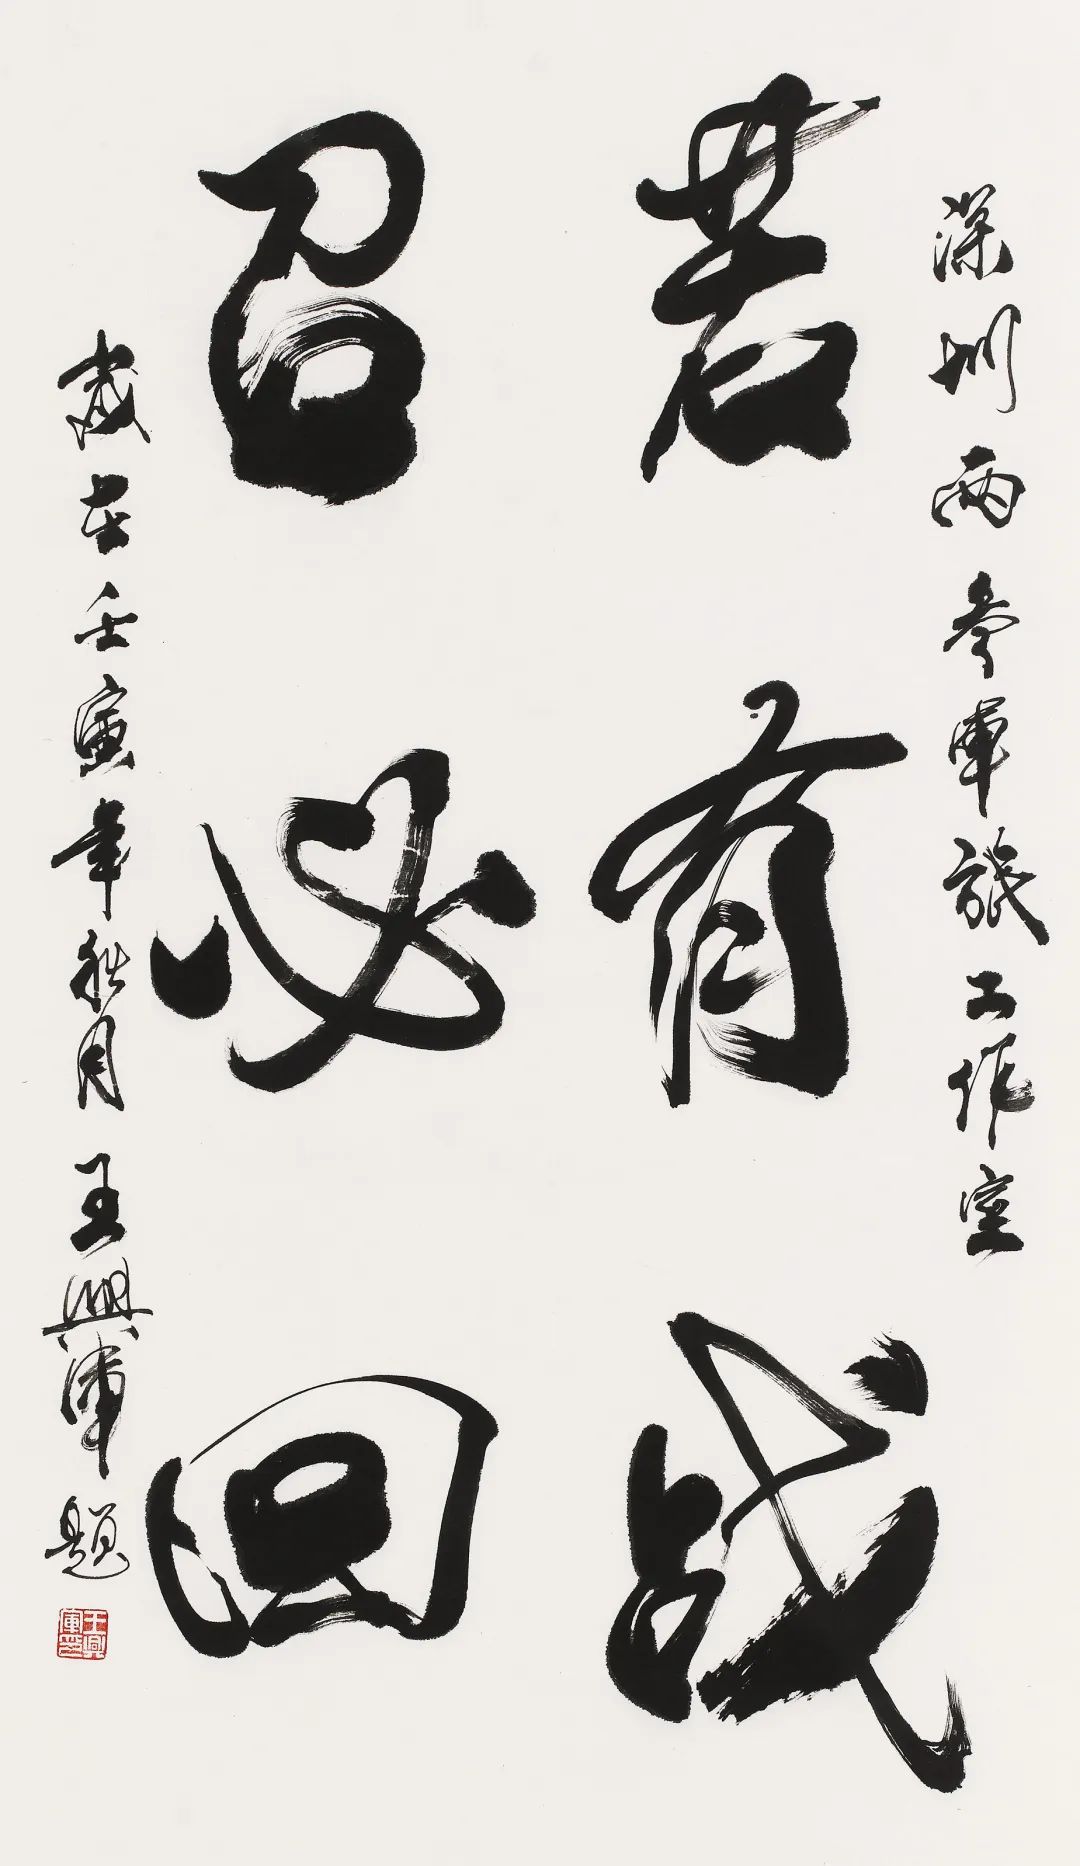 深圳两参軍旅工作室
若有战
召必回
歲在壬寅年秋月 王興軍題
王興軍印